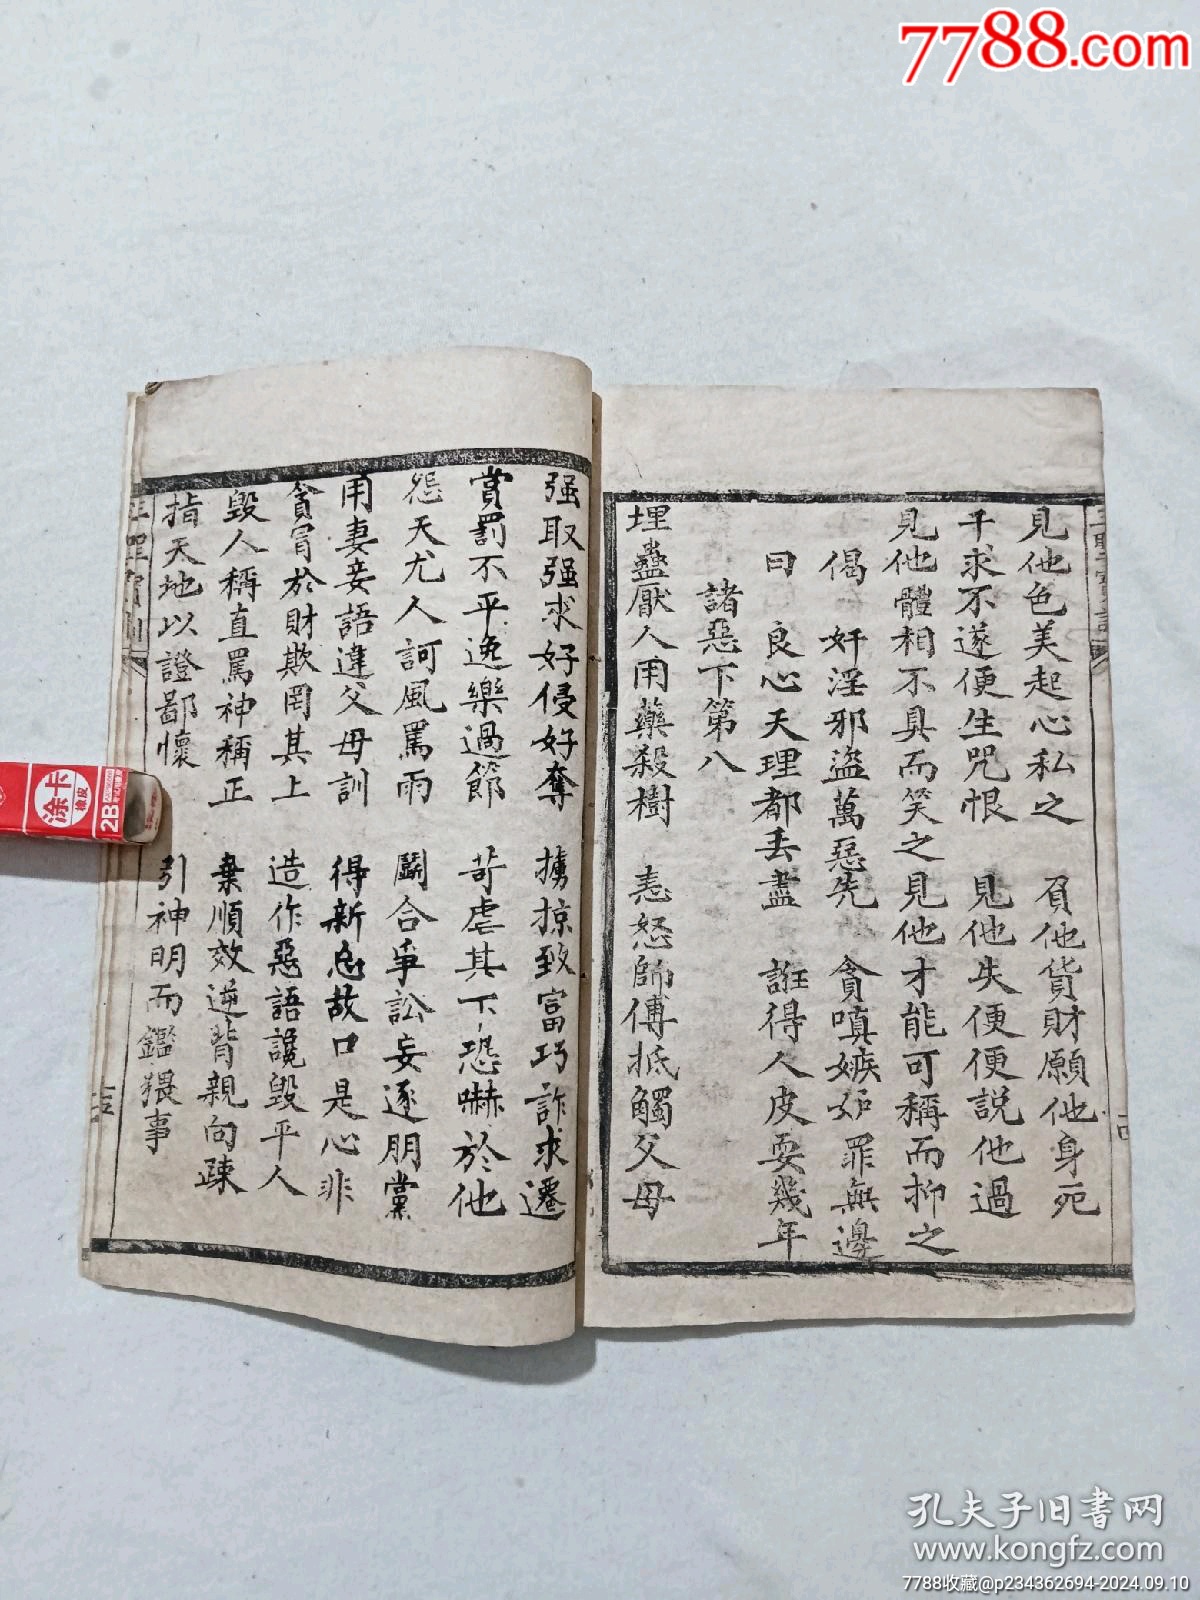 7788.com
見他色美起心私之 負他貨財願他身死
干求不遂便生咒恨 見他失便便説他過
見他體相不具而笑之見他才能可稱而抑之
偈 奸淫邪盜萬惡先 貪嗔嫉妒罪無邊
曰 良心天理都丢盡 誑得人皮耍幾年
諸惡下第八
埋蠱厭人用藥殺樹 恚怒師傅抵觸父母
强取强求好侵好奪 擄掠致富巧詐求遷
賞罰不平逸樂過節 苛虐其下恐嚇於他
怨天尤人訶風罵雨 鬬合爭訟妄逐朋黨
用妻妾語違父母訓 得新忘故口是心非
貪冒於財欺罔其上 造作惡語讒毀平人
毀人稱直罵神稱正 棄順效逆背親向疎
指天地以證鄙懷 引神明而鑑猥事
十五
涂卡
橡皮
2B
孔夫子旧书网
www.kongfz.com
7788收藏@p234362694-2024.09.10